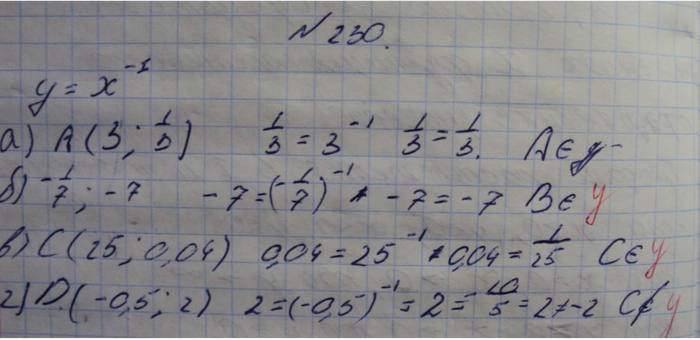 N 230.
y = x⁻¹
а) A (3; 1/3) 1/3 = 3⁻¹ 1/3 = 1/3. A ∈ y
б) -1/7; -7 -7 = (-1/7)⁻¹ -7 = -7 B ∈ y
в) C (25; 0,04) 0,04 = 25⁻¹ 0,04 = 1/25 C ∈ y
г) D. (-0,5; 2) 2 = (-0,5)⁻¹ = 2 = -10/5 = 2 ≠ -2 C ∉ y